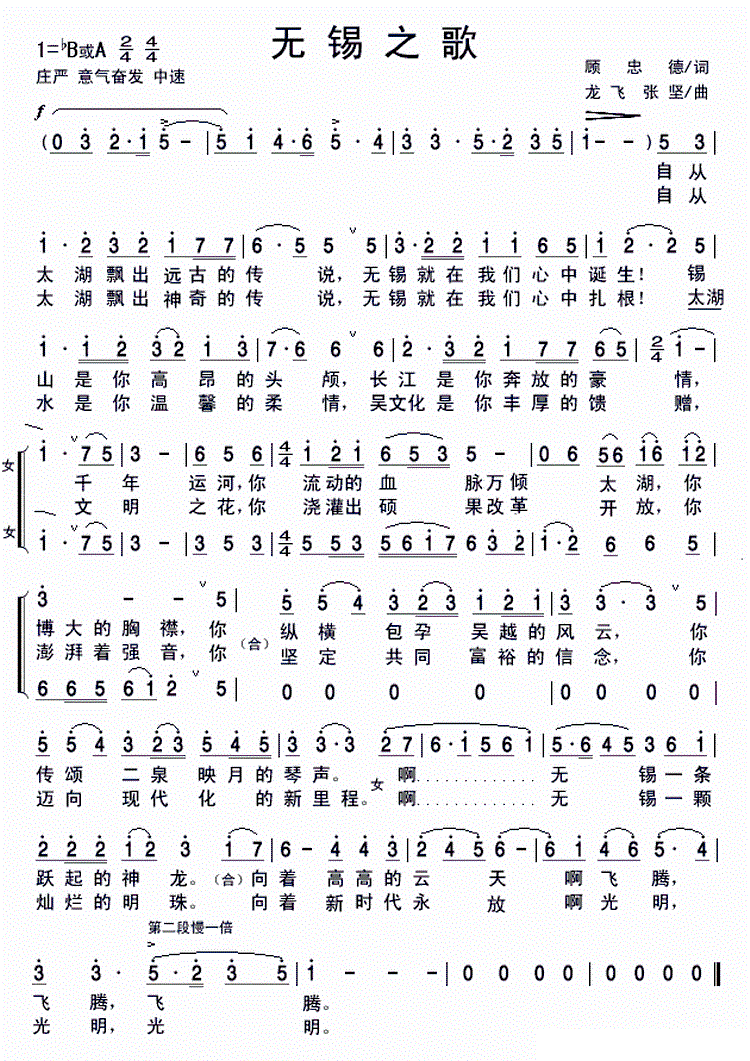 无锡之歌
1=♭B或A 2/4 4/4
庄严 意气奋发 中速
顾 忠 德/词
龙飞 张坚/曲
f
(0 3 2·1 5 - | 5 1 4·6 5·4 | 3·3 5·2 3 5 | 1 - - ) 5 3 |
自从
自从
1·2 3 2 1 7 7 | 6·5 5 5 | 3·2 2 1 1 6 5 | 1 2·2 5 |
太湖飘出远古的传说,无锡就在我们心中诞生!锡
太湖飘出神奇的传说,无锡就在我们心中扎根!太湖
1·1 2 3 2 1 3 | 7·6 6 6 | 2·3 2 1 7 7 6 5 | 2/4 1 - |
山是你高昂的头颅,长江是你奔放的豪情,
水是你温馨的柔情,吴文化是你丰厚的馈赠,
女 1·7 5 | 3 - | 6 5 6 | 4/4 1 1 2 1 6 5 3 5 - | 0 6 5 6 1 6 1 2 |
千年运河,你流动的血脉万倾太湖,你
文明之花,你浇灌出硕果改革开放,你
女 1·7 5 | 3 - | 3 5 3 | 4/4 5 5 5 3 5 6 1 7 | 6 3·2 | 1·2 6 6 5 |
3 - - 5 | 5 5 4 3 2 3 1 2 1 | 3 3·2 5 |
博大的胸襟,你(合)纵横包孕吴越的风云,你
澎湃着强音,你 坚定共同富裕的信念,你
6 6 5 6 1 2 5 | 0 0 0 0 | 0 0 0 0 |
5 5 4 3 2 3 5 4 5 | 3 3·3 2 7 | 6·1 5 6 1 | 5·6 4 5 3 6 1 |
传颂二泉映月的琴声。女啊............无锡一条
迈向现代化的新里程。啊............无锡一颗
2 2 2 1 2 3 1 7 | 6 - 4 4 3 | 2 4 5 6 - | 6 1 6 4 5·4 |
跃起的神龙。(合)向着高高的云天啊飞腾,
灿烂的明珠。向着新时代永放啊光明,
第二段慢一倍
3 3· 5·2 3 5 | 1 - - - | 0 0 0 0 | 0 0 0 0 ‖
飞腾,飞腾。
光明,光明。